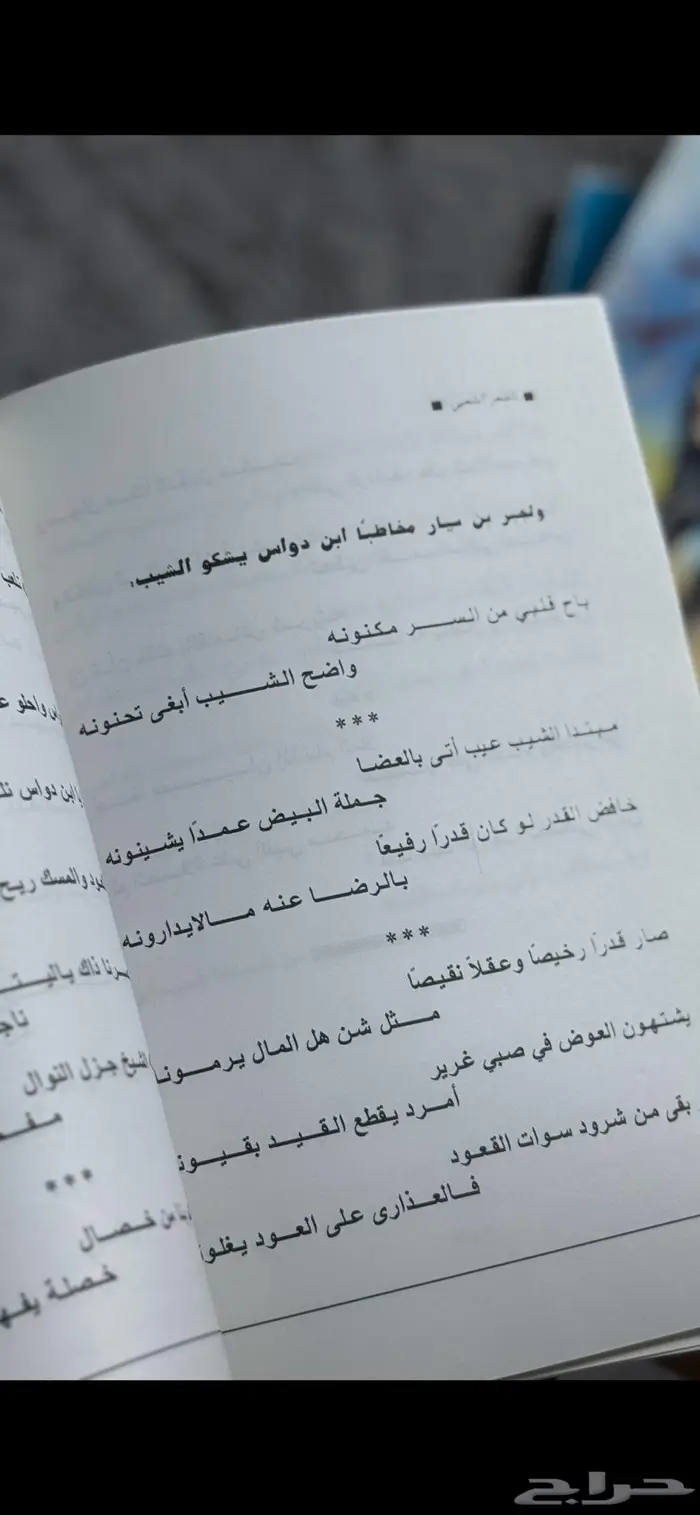 ■ الشعر الشعبي ■
ولجبر بن سيار مخاطبًا ابن دواس يشكو الشيب:
باح قلبي من الســـر مكنونه
واضح الشـــيب أبغى تحنونه
***
مبتدا الشيب عيب أتى بالعضا
جملة البيض عمدًا يشينونه
خافض القدر لو كان قدرًا رفيعًا
بالرضا عنه مالايدارونه
***
صار قدرًا رخيصًا وعقلاً نقيصًا
مثل شن هل المال يرمونا
يشتهون العوض في صبي غرير
أمرد يقطع القيد بقيونـ
بقى من شرود سوات القعود
فالعذارى على العود يغلونـ
يا ابن دواس
والمسك ريح
ذاك ياليتـ
الشيخ جزل النوال
***
من خصال
خصلة يفهـ
حراج